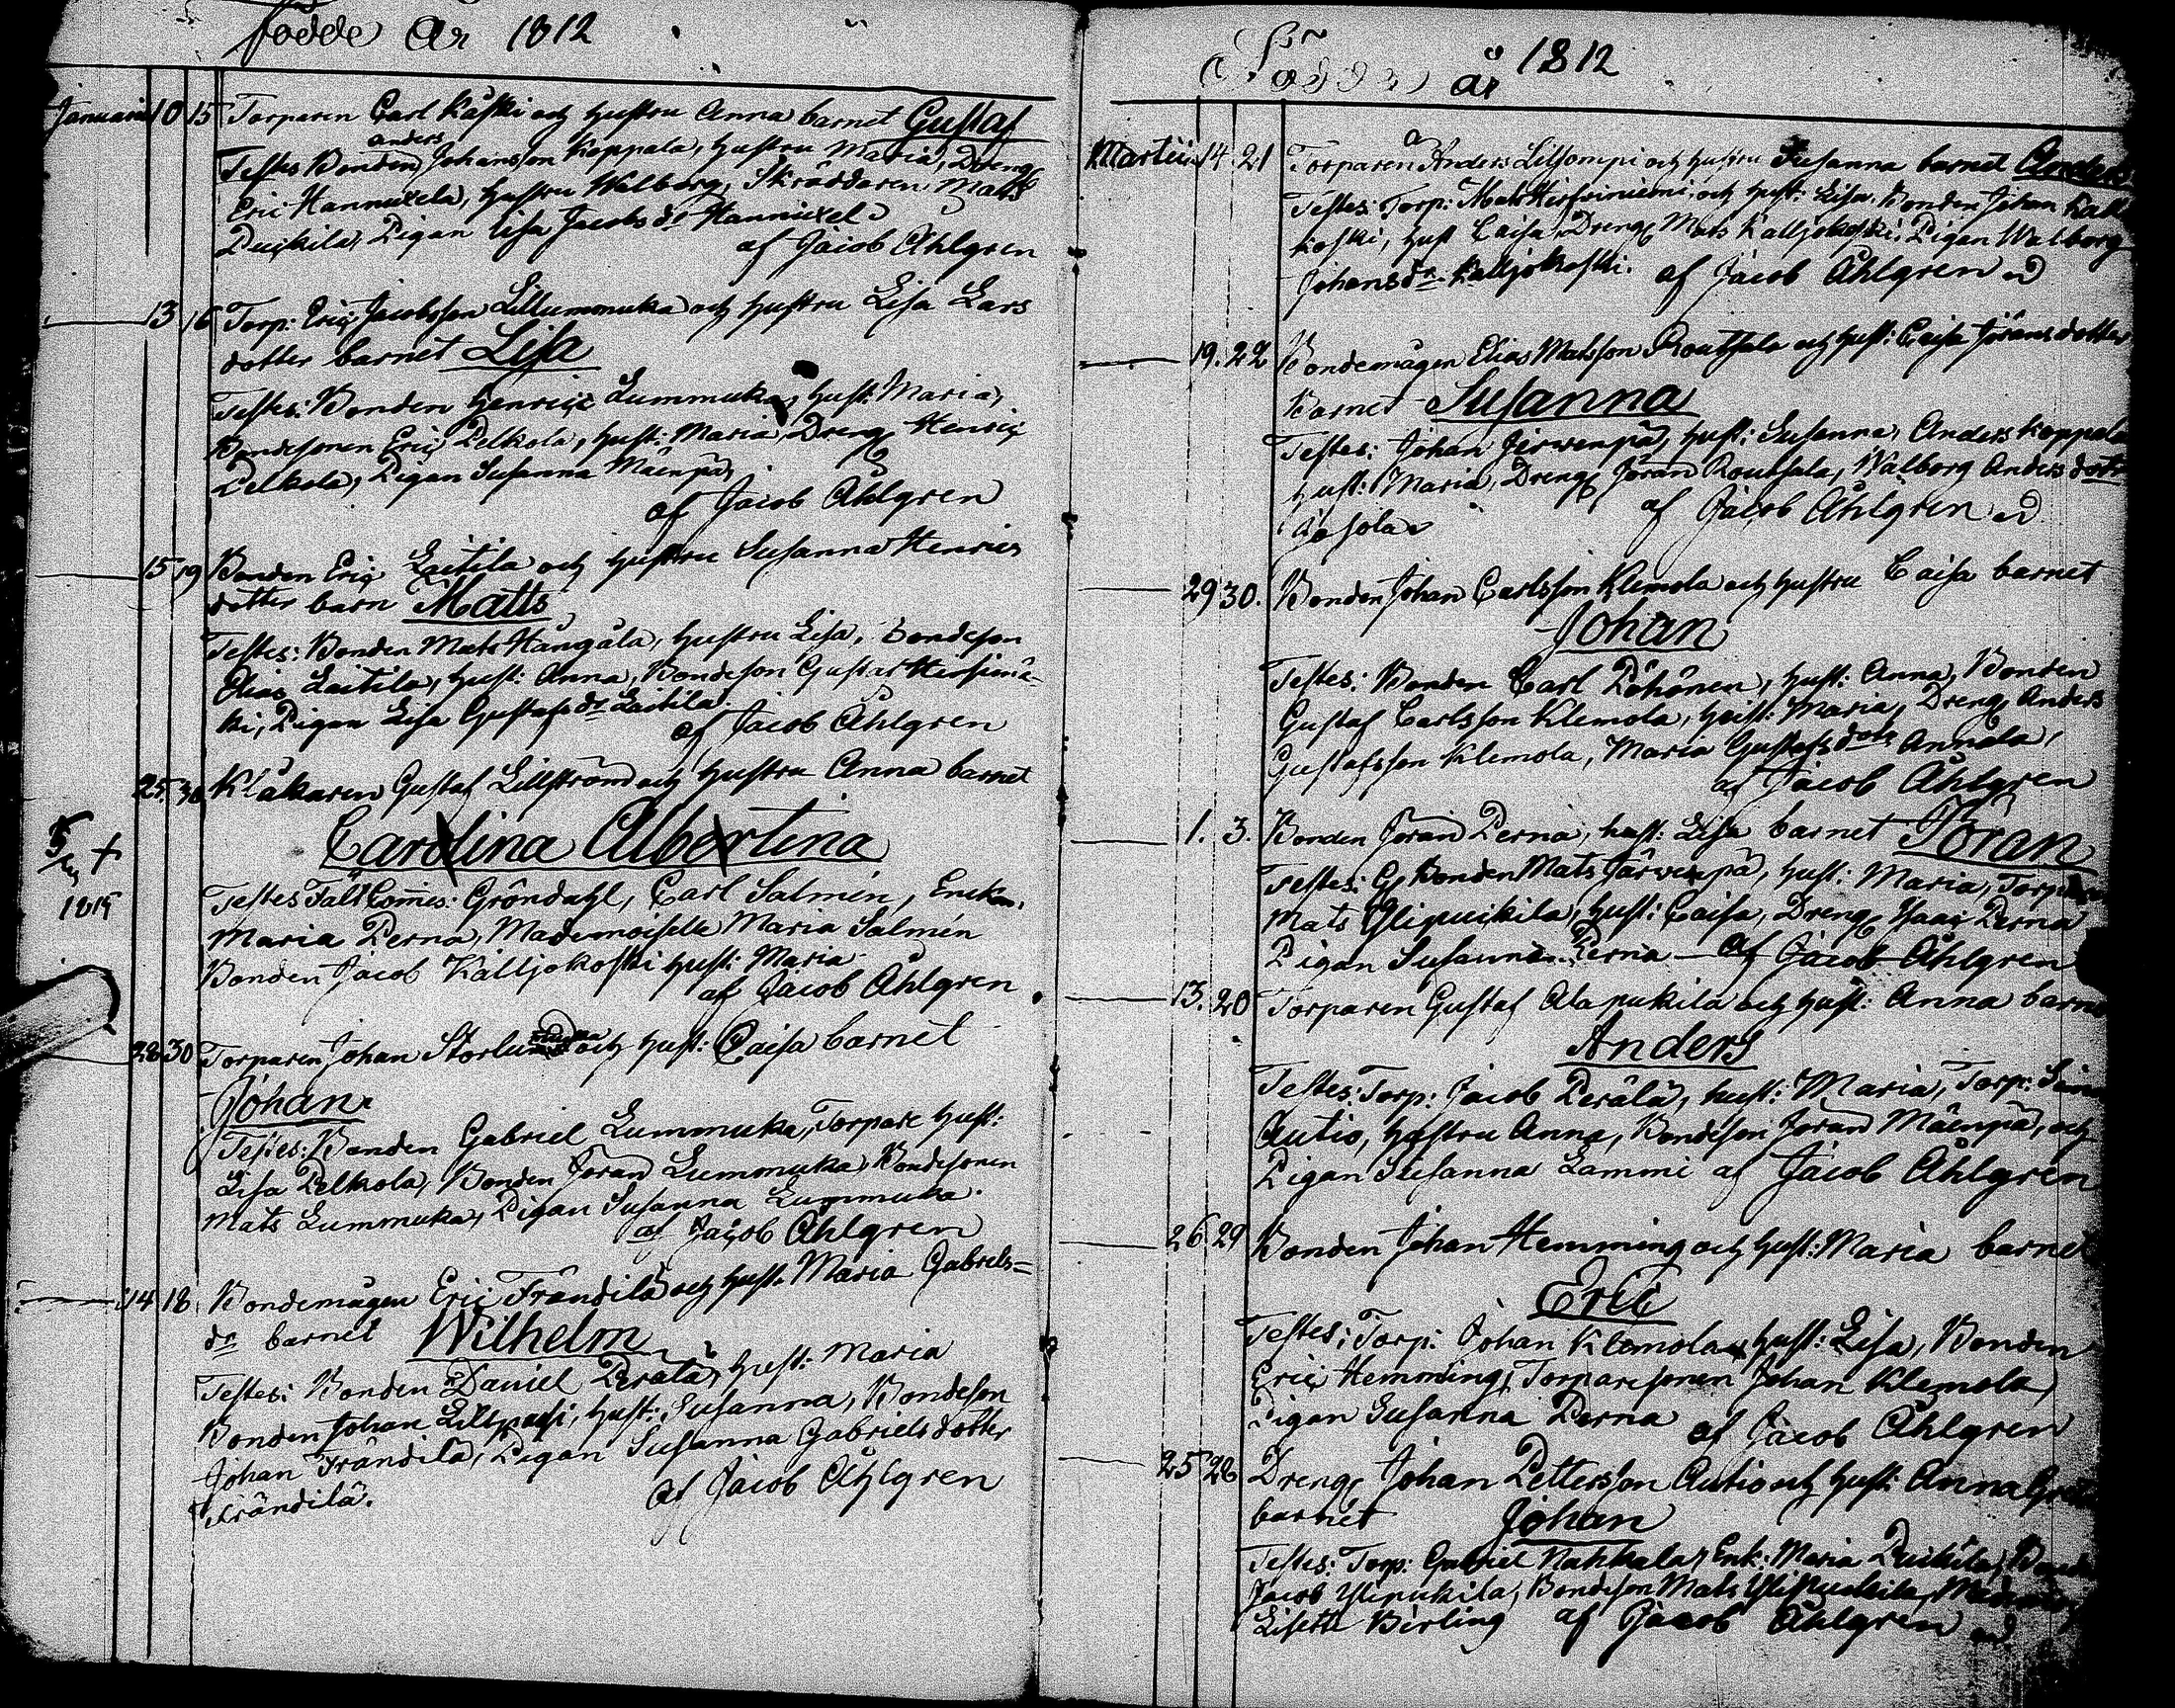 Födde År 1812
Januarii 10 15 Torparen Carl Kaski och hustru Anna barnet Gustaf
anders
Testes Bonden Johansson Koppala, hustru Maria, Dreng
Eric Hannuxela, hustru Walborg, Skräddaren Mats
Puikila, Pigan Lisa Jacobs dr Hannuxela
af Jacob Åhlgren
13 16 Torp: Eric Jacobsson Lillummuka och hustru Lisa Lars
dotter barnet Lisa
Testes: Bonden Henric Lummuka, hust: Maria,
Bondesonen Eric Pelkola, hust: Maria, Dreng Henric
Pelkola, Pigan Susanna Mäenpä,
af Jacob Åhlgren
15 19 Bonden Eric Laitila och hustru Susanna Henrics
dotter barn Matts
Testes: Bonden Mats Hangala, hustru Lisa, Bondeson
Elias Laitila, hust: Anna, Bondeson Gustaf
ki, Pigan Lisa Gustafs dr Laitila.
af Jacob Åhlgren
25. 30 Klåkaren Gustaf Lillström och hustru Anna barnet
Carolina Albertina
5 +
1819
Testes Fält Comis: Gröndahl, Carl Salmén, Enckan
Maria Perna, Mademoiselle Maria Salmén
Bonden Jacob Kalljokoski hust: Maria
af Jacob Åhlgren
28 30 Torparen Johan och hust: Caisa barnet
Johan
Testes: Bonden Gabriel Lummuka, Torpare hust:
Lisa Pelkola, Bonden Jöran Lummuka, Bondesonen
Mats Lummuka, Pigan Susanna Lummuka.
af Jacob Åhlgren
14 18 Bondemågen Eric Frändilä och hust. Maria Gabriels=
dr barnet Wilhelm
Testes: Bonden Daniel Perälä, hust: Maria
Bonden Johan hust: Susanna, Bondeson
Johan Frändilä, Pigan Susanna Gabrielsdotter
Frändilä.
af Jacob Åhlgren
Födde år 1812
Martii 14 21 Torparen Anders Lilsompi och hustru Susanna barnet Anders
Testes: Torp: Mats och hust: Lisa. Bonden Johan Kall
koski, hust Caisa, Dreng Mats Kalljokoski, Pigan Walborg
Johansdr Kalljokoski. af Jacob Åhlgren
19. 22 Bondemågen Elias Matsson Routsala och hust: Caisa Jöransdotter
Barnet Susanna
Testes: Johan Jerwenpä, hust: Susanna, Anders Koppala
hust: Maria, Dreng Jöran Routsala, Walborg Anders dotr
Gosola
af Jacob Åhlgren
29 30. Bonden Johan Carlsson Klemola och hustru Caisa barnet
Johan
Testes: Bonden Carl Pöhönen, hust: Anna, Bonden
Gustaf Carlsson Klemola, hust: Maria, Dreng Anders
Gustafsson Klemola, Maria Gustafs dotr Annala,
af Jacob Åhlgren
1. 3. Bonden Jöran Perna, hust: Lisa barnet Jöran
Testes: Bonden Mats Järwenpä, hust: Maria, Torparen
Mats Ylipuikila, hust: Caisa, Dreng Isaac Perna
Pigan Susanna Perna — af Jacob Åhlgren
13. 20 Torparen Gustaf Alapukila och hust: Anna barnet
Anders
Testes: Torp: Jacob Perälä, hust: Maria, Torp: Simon
Autio, hustru Anna, Bondeson Jöran Mäenpä, och
Pigan Susanna Lammi af Jacob Åhlgren
26 29 Bonden Johan Hemming och hust: Maria barnet
Eric
Testes: Torp: Johan Klemola, hust: Lisa, Bonden
Eric Hemming, Torparesonen Johan Klemola,
Pigan Susanna Perna af Jacob Åhlgren
25 28 Dreng Johan Pettersson Autio och hust: Anna
barnet Johan
Testes: Torp: Gabriel Nahkala, Enk: Maria Puikila,
Jacob Ylipukila, Bondeson Mats Ylipuikila,
Lisetta Birling af Jacob Åhlgren